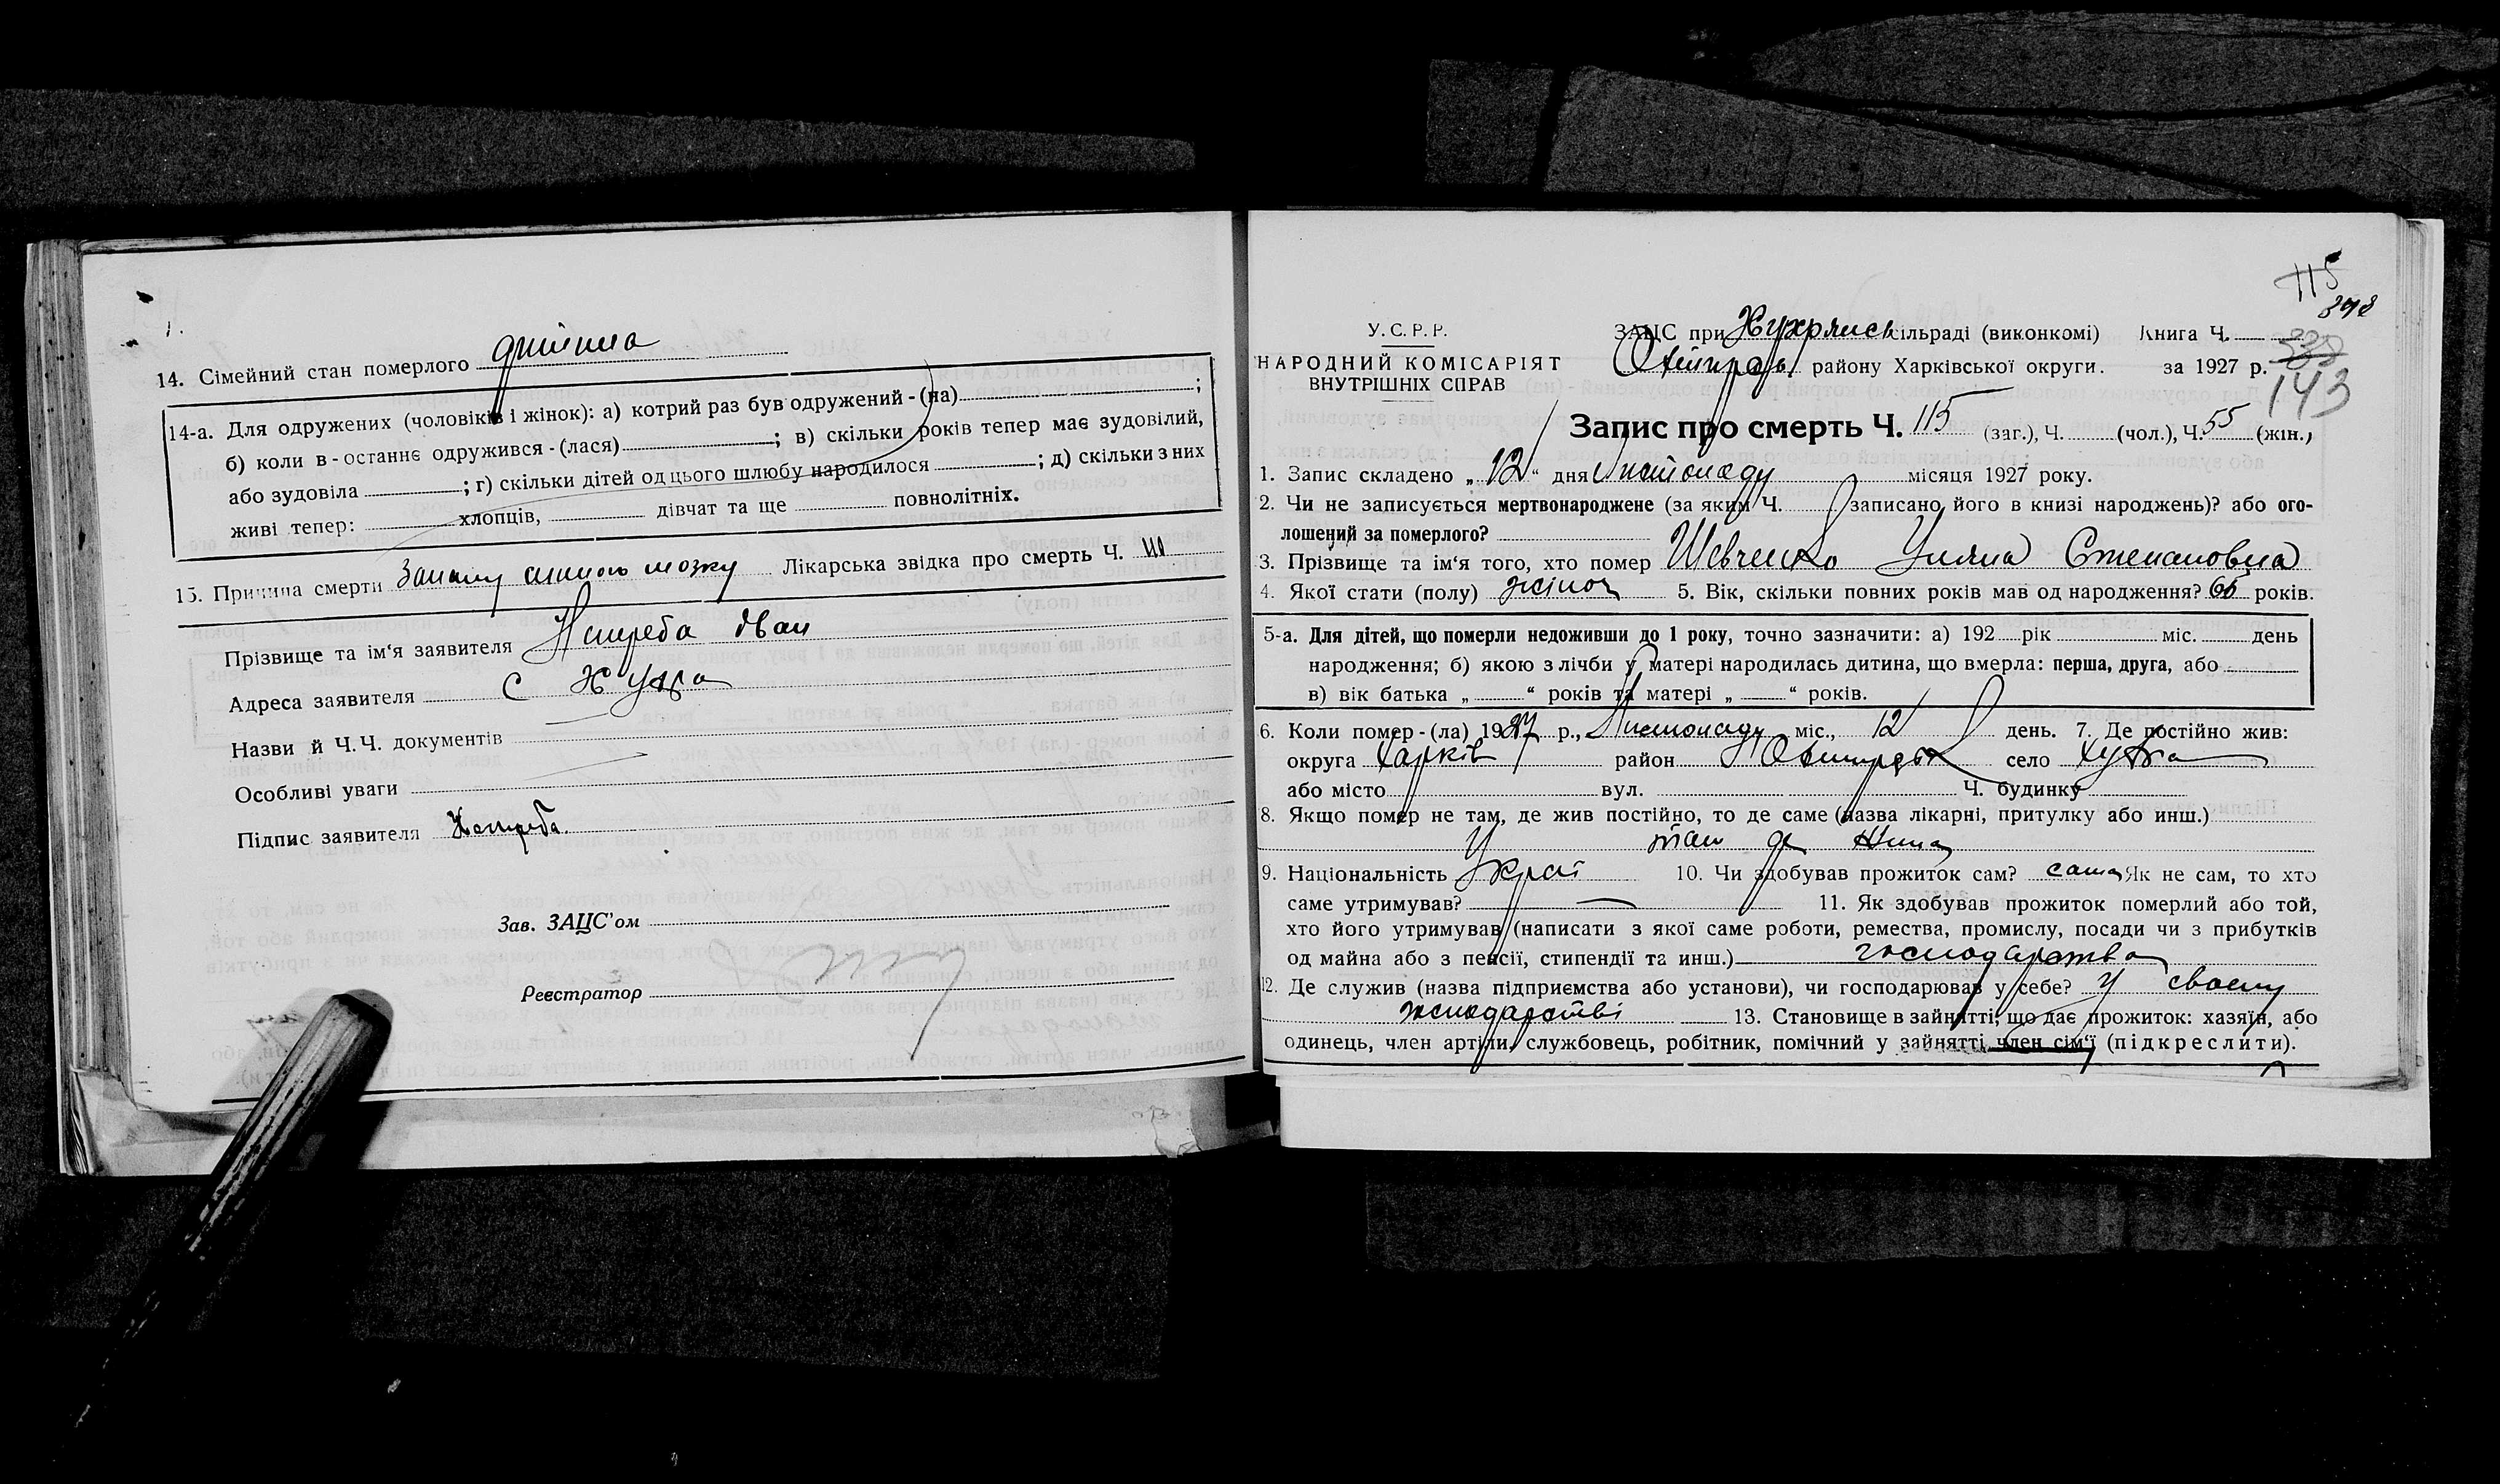 14. Сімейний стан померлого
14-а. Для одружених (чоловіків і жінок): а) котрий раз був одружений - (на) ;
б) коли в - останнє одружився - (лася) ; в) скільки років тепер має зудовілий,
або зудовіла ; г) скільки дітей од цього шлюбу народилося ; д) скільки з них
живі тепер: хлопців, дівчат та ще повнолітніх.
15. Причина смерти мозку Лікарська звідка про смерть Ч.
Прізвище та ім'я заявителя Іван
Адреса заявителя С Хухра
Назви й Ч.Ч. документів
Особливі уваги
Підпис заявителя
Зав. ЗАЦС'ом
Реєстратор
115
У.С.Р.Р.
НАРОДНИЙ КОМІСАРІЯТ
ВНУТРІШНІХ СПРАВ
ЗАЦС при Хухрянсь сільраді (виконкомі) Книга Ч.
району Харківської округи. за 1927 р.
143
Запис про смерть Ч. 115 (заг.), Ч. (чол.), Ч. 55 (жін.)
1. Запис складено „ 12 “ дня Листопаду місяця 1927 року.
2. Чи не записується мертвонароджене (за яким Ч. записано його в книзі народжень)? або ого-
лошений за померлого?
3. Прізвище та ім'я того, хто помер Шевченко Уляна Степановна
4. Якої стати (полу) жіноч 5. Вік, скільки повних років мав од народження? 65 років.
5-а. Для дітей, що померли недоживши до 1 року, точно зазначити: а) 192 рік міс. день
народження; б) якою з лічби у матері народилась дитина, що вмерла: перша, друга, або
в) вік батька „ “ років та матері „ “ років.
6. Коли помер - (ла) 1927 р., Листопаду міс., 12 день. 7. Де постійно жив:
округа Харків район село Хухра
або місто вул. Ч. будинку
8. Якщо помер не там, де жив постійно, то де саме (назва лікарні, притулку або инш.)
там де жила
9. Національність Украї 10. Чи здобував прожиток сам? сама Як не сам, то хто
саме утримував? — 11. Як здобував прожиток померлий або той,
хто його утримував (написати з якої саме роботи, ремества, промислу, посади чи з прибутків
од майна або з пенсії, стипендії та инш.) господарства
12. Де служив (назва підприємства або установи), чи господарював у себе? У своєму
господарстві 13. Становище в зайнятті, що дає прожиток: хазяїн, або
одинець, член артіли, службовець, робітник, помічний у зайнятті член сім'ї (підкреслити).